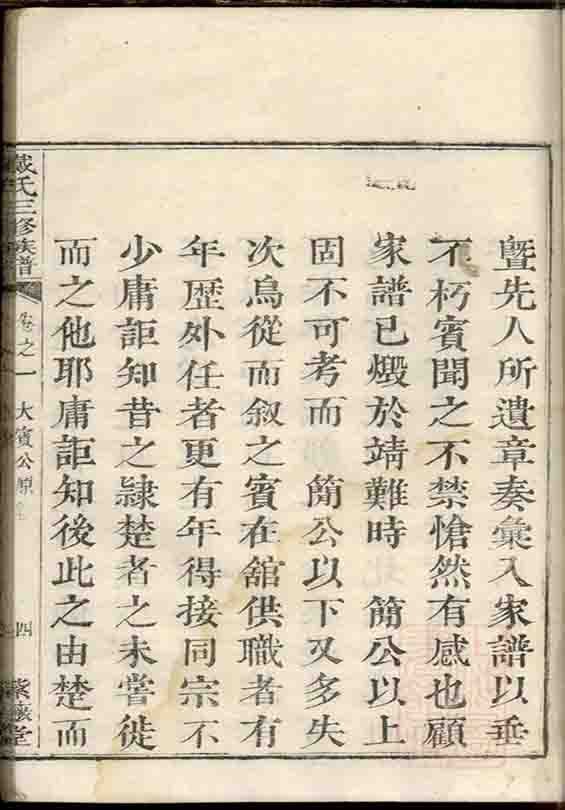 暨先人所遺章奏彙入家譜以垂
不朽賓聞之不禁愴然有感也顧
家譜已燬於靖難時 簡公以上
固不可考而 簡公以下又多失
次烏從而叙之賓在舘供職者有
年歷外任者更有年得接同宗不
少庸詎知昔之隷楚者之未嘗徙
而之他耶庸詎知後此之由楚而
戴氏三修族譜
卷之一 大賓公原
四
紫 堂